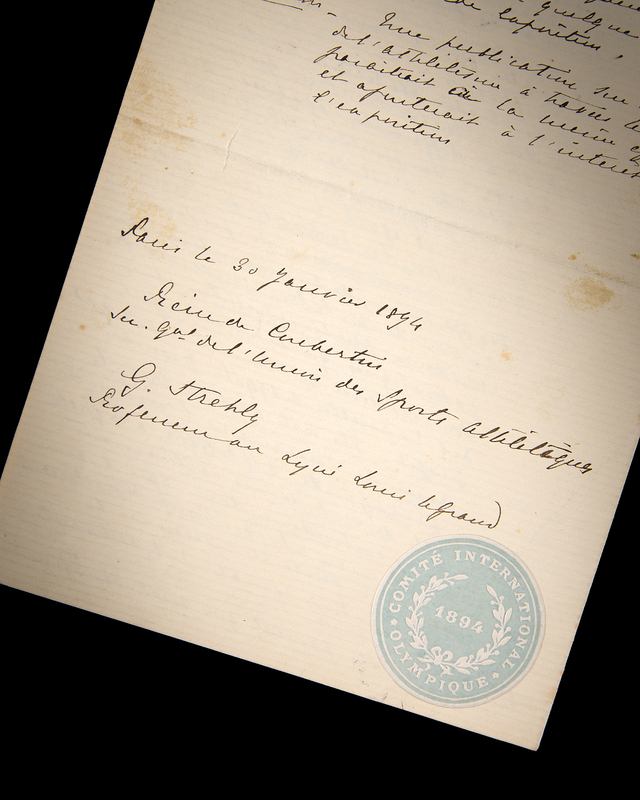 quelque
Une publication sur
de l'athlétisme à travers le
paraîtrait à la même
et ajouterait à l'intérêt
l'exposition
Paris le 30 Janvier 1894
Pierre de Coubertin
Sec. Gal de l'Union des Sports athlétiques
G. Strehly
Professeur au Lycée Louis le Grand
COMITÉ INTERNATIONAL
OLYMPIQUE
1894